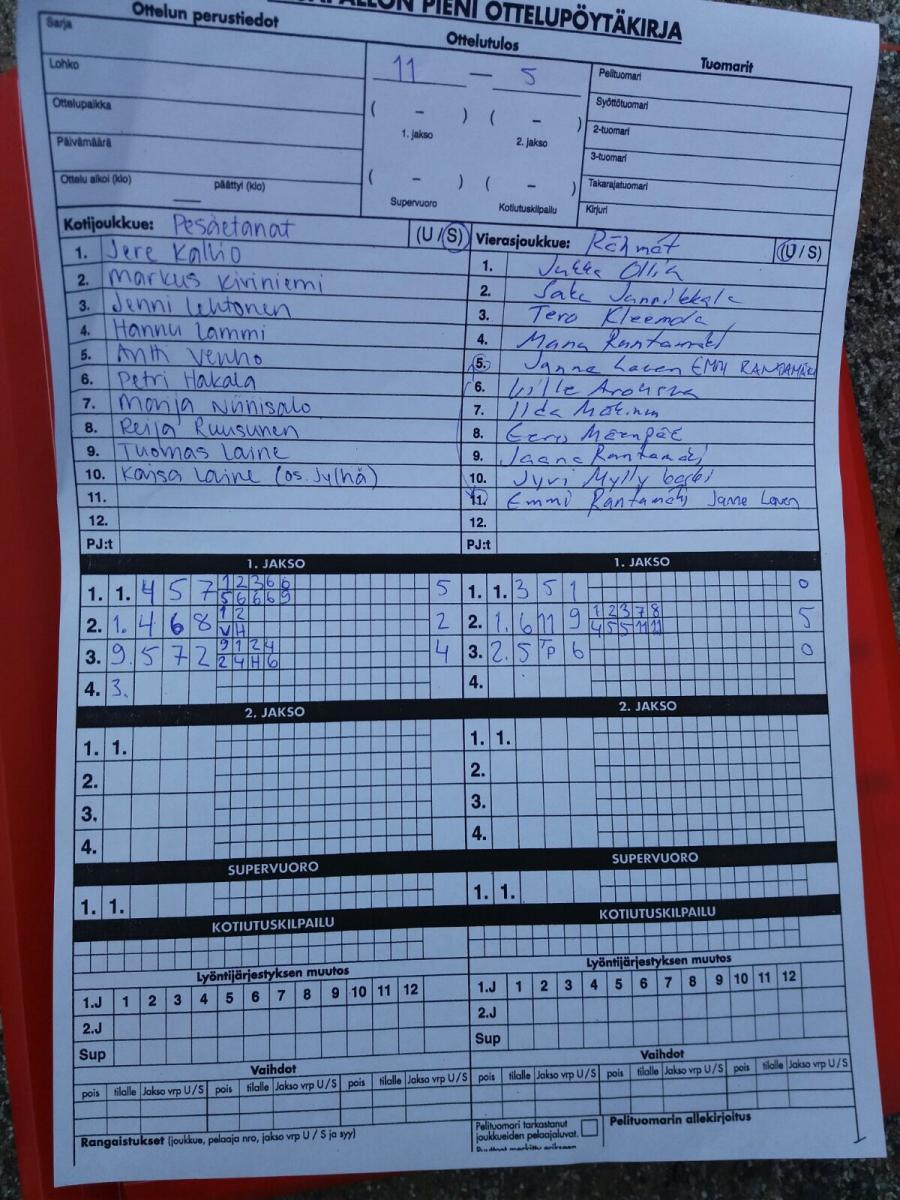 PIENI OTTELUPÖYTÄKIRJA
Ottelun perustiedot
Ottelutulos
Tuomarit
Sarja
Lohko
Ottelupaikka
Päivämäärä
Ottelu alkoi (klo) päättyi (klo)
11 — 5
( – ) ( – )
1. jakso 2. jakso
( – ) ( – )
Supervuoro Kotiutuskilpailu
Pelituomari
Syöttötuomari
2-tuomari
3-tuomari
Takarajatuomari
Kirjuri
Kotijoukkue: Pesäetanat (U / S)
1. Jere Kallio
2. Markus Kiviniemi
3. Jenni Lehtonen
4. Hannu Lammi
5. Antti Venho
6. Petri Hakala
7. Monja Niinisalo
8. Reija Ruusunen
9. Tuomas Laine
10. Kaisa Laine (os. Jylhä)
11.
12.
PJ:t
Vierasjoukkue: Rähmät (U / S)
1. Jukka Ollia
2.
3. Tero Kleemola
4. Rantamäki
5. Janne EMMI RANTAMÄKI
6. Ville
7. Iida
8. Eero Mäenpää
9. Jaana Rantamäki
10. Jyri
11. Emmi Rantamäki Janne
12.
PJ:t
1. JAKSO
1. 1. 4 5 7 1 2 3 6 6 5
5 6 6 6 9
2. 1. 4 6 8 1 2 2
V H
3. 9. 5 7 2 9 1 2 4 4
2 4 H 6
4. 3.
1. JAKSO
1. 1. 3 5 1 0
2. 1. 6 11 9 1 2 3 7 8 5
4 5 5 11 11
3. 2. 5 TP 6 0
4.
2. JAKSO
1. 1.
2.
3.
4.
2. JAKSO
1. 1.
2.
3.
4.
SUPERVUORO
1. 1.
SUPERVUORO
1. 1.
KOTIUTUSKILPAILU
KOTIUTUSKILPAILU
Lyöntijärjestyksen muutos
1.J 1 2 3 4 5 6 7 8 9 10 11 12
2.J
Sup
Lyöntijärjestyksen muutos
1.J 1 2 3 4 5 6 7 8 9 10 11 12
2.J
Sup
Vaihdot
pois tilalle Jakso vrp U / S pois tilalle Jakso vrp U / S pois tilalle Jakso vrp U / S
Vaihdot
pois tilalle Jakso vrp U / S pois tilalle Jakso vrp U / S pois tilalle Jakso vrp U / S
Rangaistukset (joukkue, pelaaja nro, jakso vrp U / S ja syy)
Pelituomari tarkastanut
joukkueiden pelaajaluvat.
Pelituomarin allekirjoitus